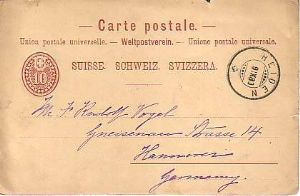 Carte postale.
Union postale universelle. — Weltpostverein. — Unione postale universale.
SUISSE. SCHWEIZ. SVIZZERA.
10
HEIDEN
Mr. F. Rudolf Vogel
Gneisenau Strasse 14
Hannover
Germany